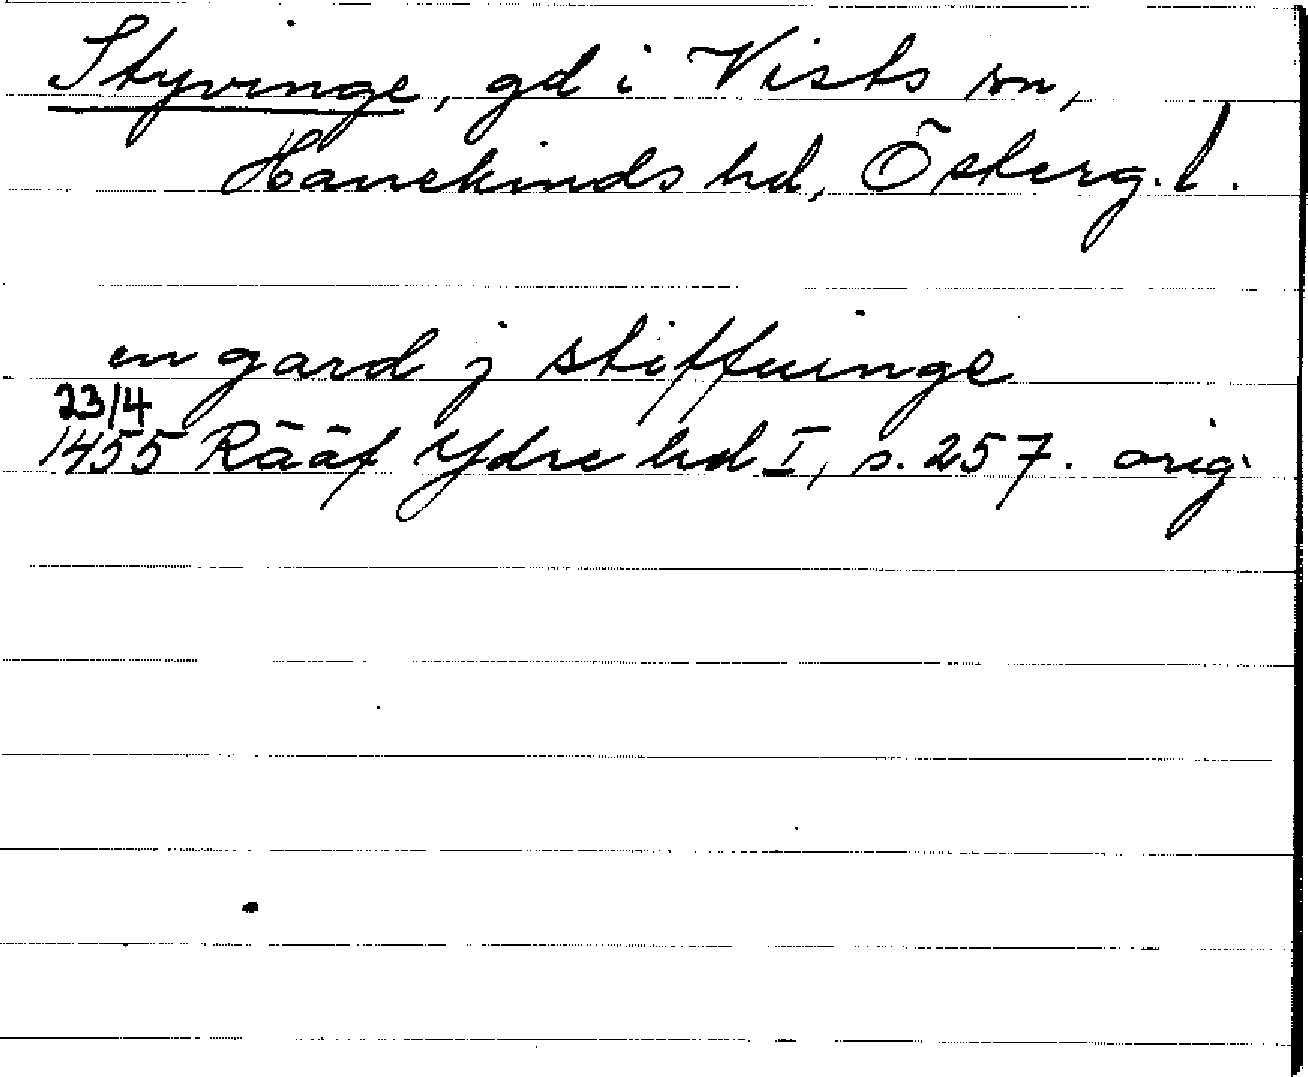 Styvinge, gd i Vists sn,
Hanekinds hd, Österg. l.
en gard j stiffuinge
23/4
1455 Rääf Ydre hd I, s. 257. orig.